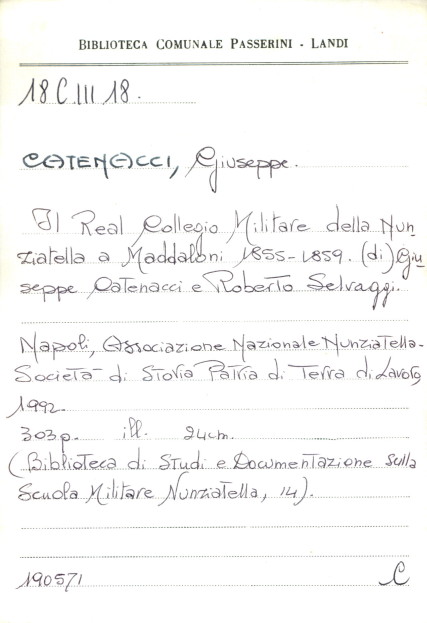 BIBLIOTECA COMUNALE PASSERINI - LANDI
18 C III 18.
CATENACCI, Giuseppe.
Il Real Collegio Militare della Nun-
ziatella a Maddaloni 1855-1859. (di) Giu-
seppe Catenacci e Roberto Selvaggi.
Napoli, Associazione Nazionale Nunziatella-
Società di Storia Patria di Terra di Lavoro,
1992.
303p. ill. 24cm.
(Biblioteca di Studi e Documentazione sulla
Scuola Militare Nunziatella, 14).
190571 C